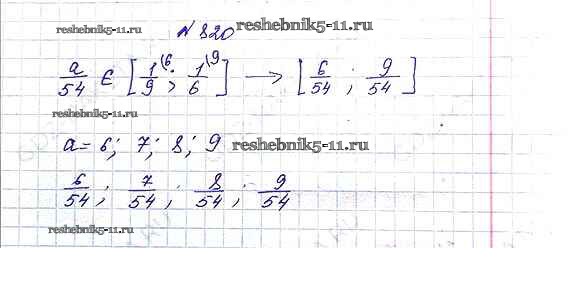 reshebnik5-11.ru № 820 reshebnik5-11.ru
a/54 ∈ [1/9 (6 ; 1/6 (9] → [6/54 ; 9/54]
a = 6; 7; 8; 9 reshebnik5-11.ru
6/54 ; 7/54 ; 8/54 ; 9/54
reshebnik5-11.ru